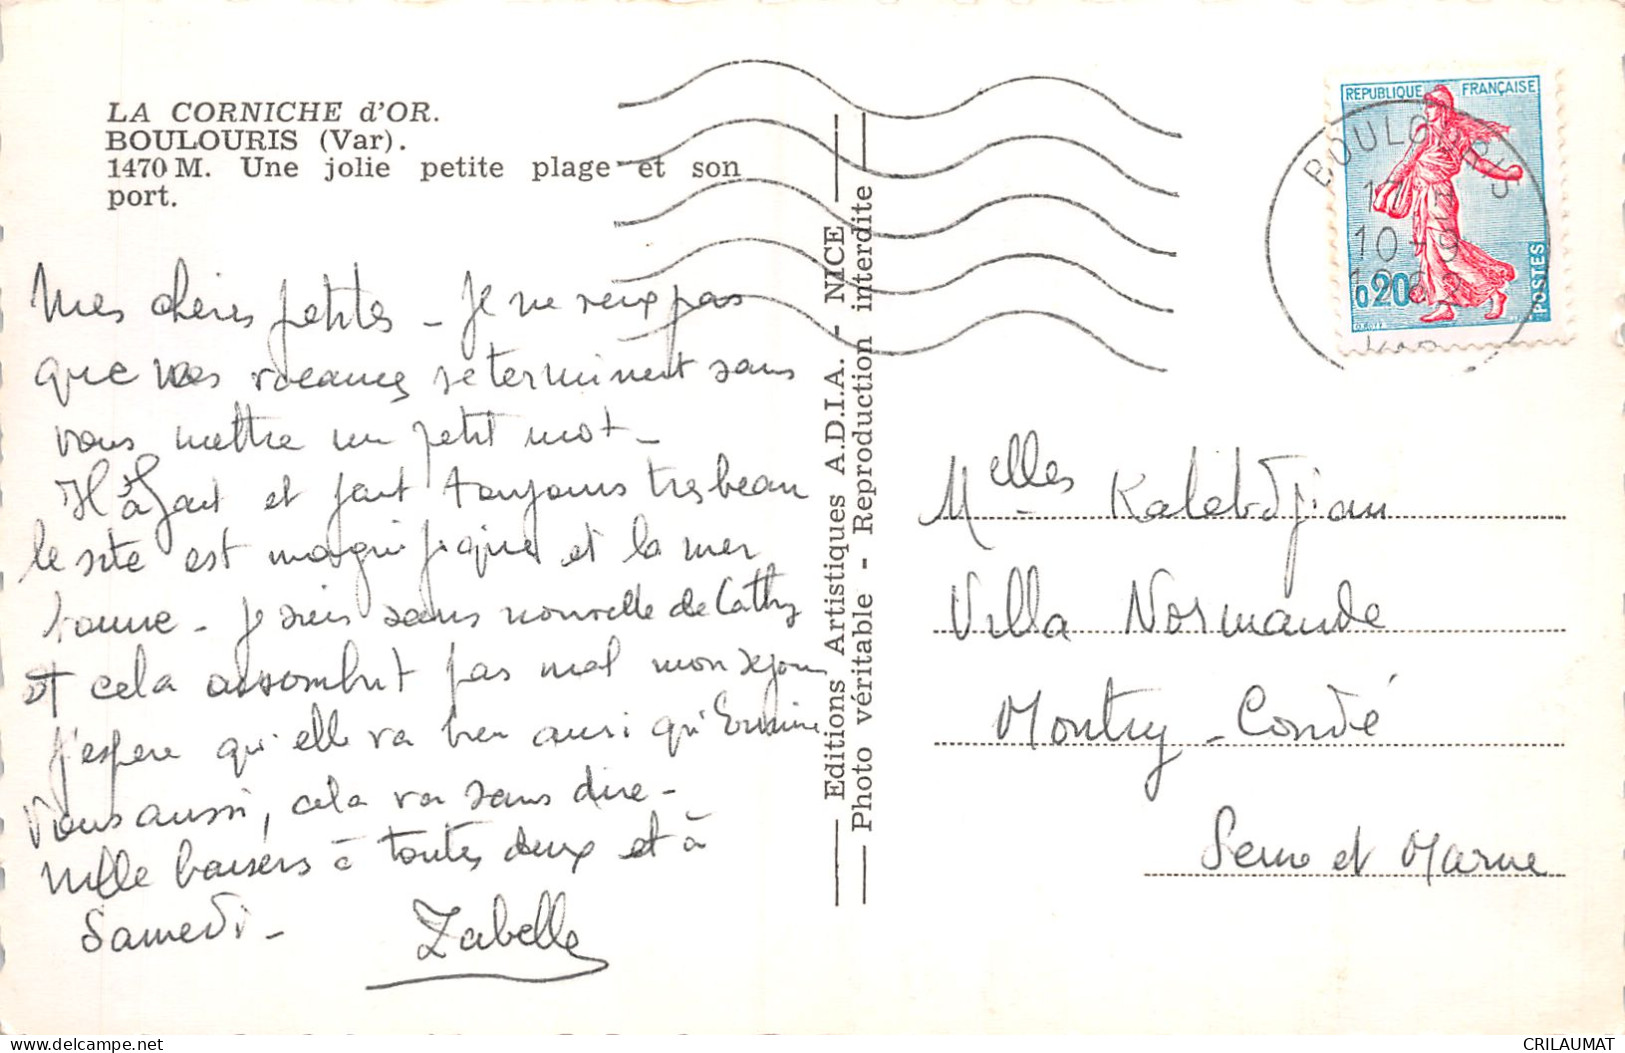 LA CORNICHE d'OR.
BOULOURIS (Var).
1470 M. Une jolie petite plage et son
port.
Mes chères petites - Je ne veux pas
que vos vacances se terminent sans
vous mettre un petit mot -
Il a fait et fait toujours tres beau
le site est magnifique et la mer
bonne - Je suis sans nouvelle de Cathy
et cela assombrit pas mal mon sejour
j'espere qu'elle va bien aussi qu'
Vous aussi, cela va sans dire -
Mille baisers à toutes deux et à
Samedi - Zabelle
Editions Artistiques A.D.I.A. - NICE
Photo véritable - Reproduction interdite
REPUBLIQUE FRANÇAISE
0,20
POSTES
BOULOURIS
17H
10-9
1962
VAR
Melles Kalebdjian
Villa Normande
Montry - Condé
Seine et Marne
CRILAUMAT